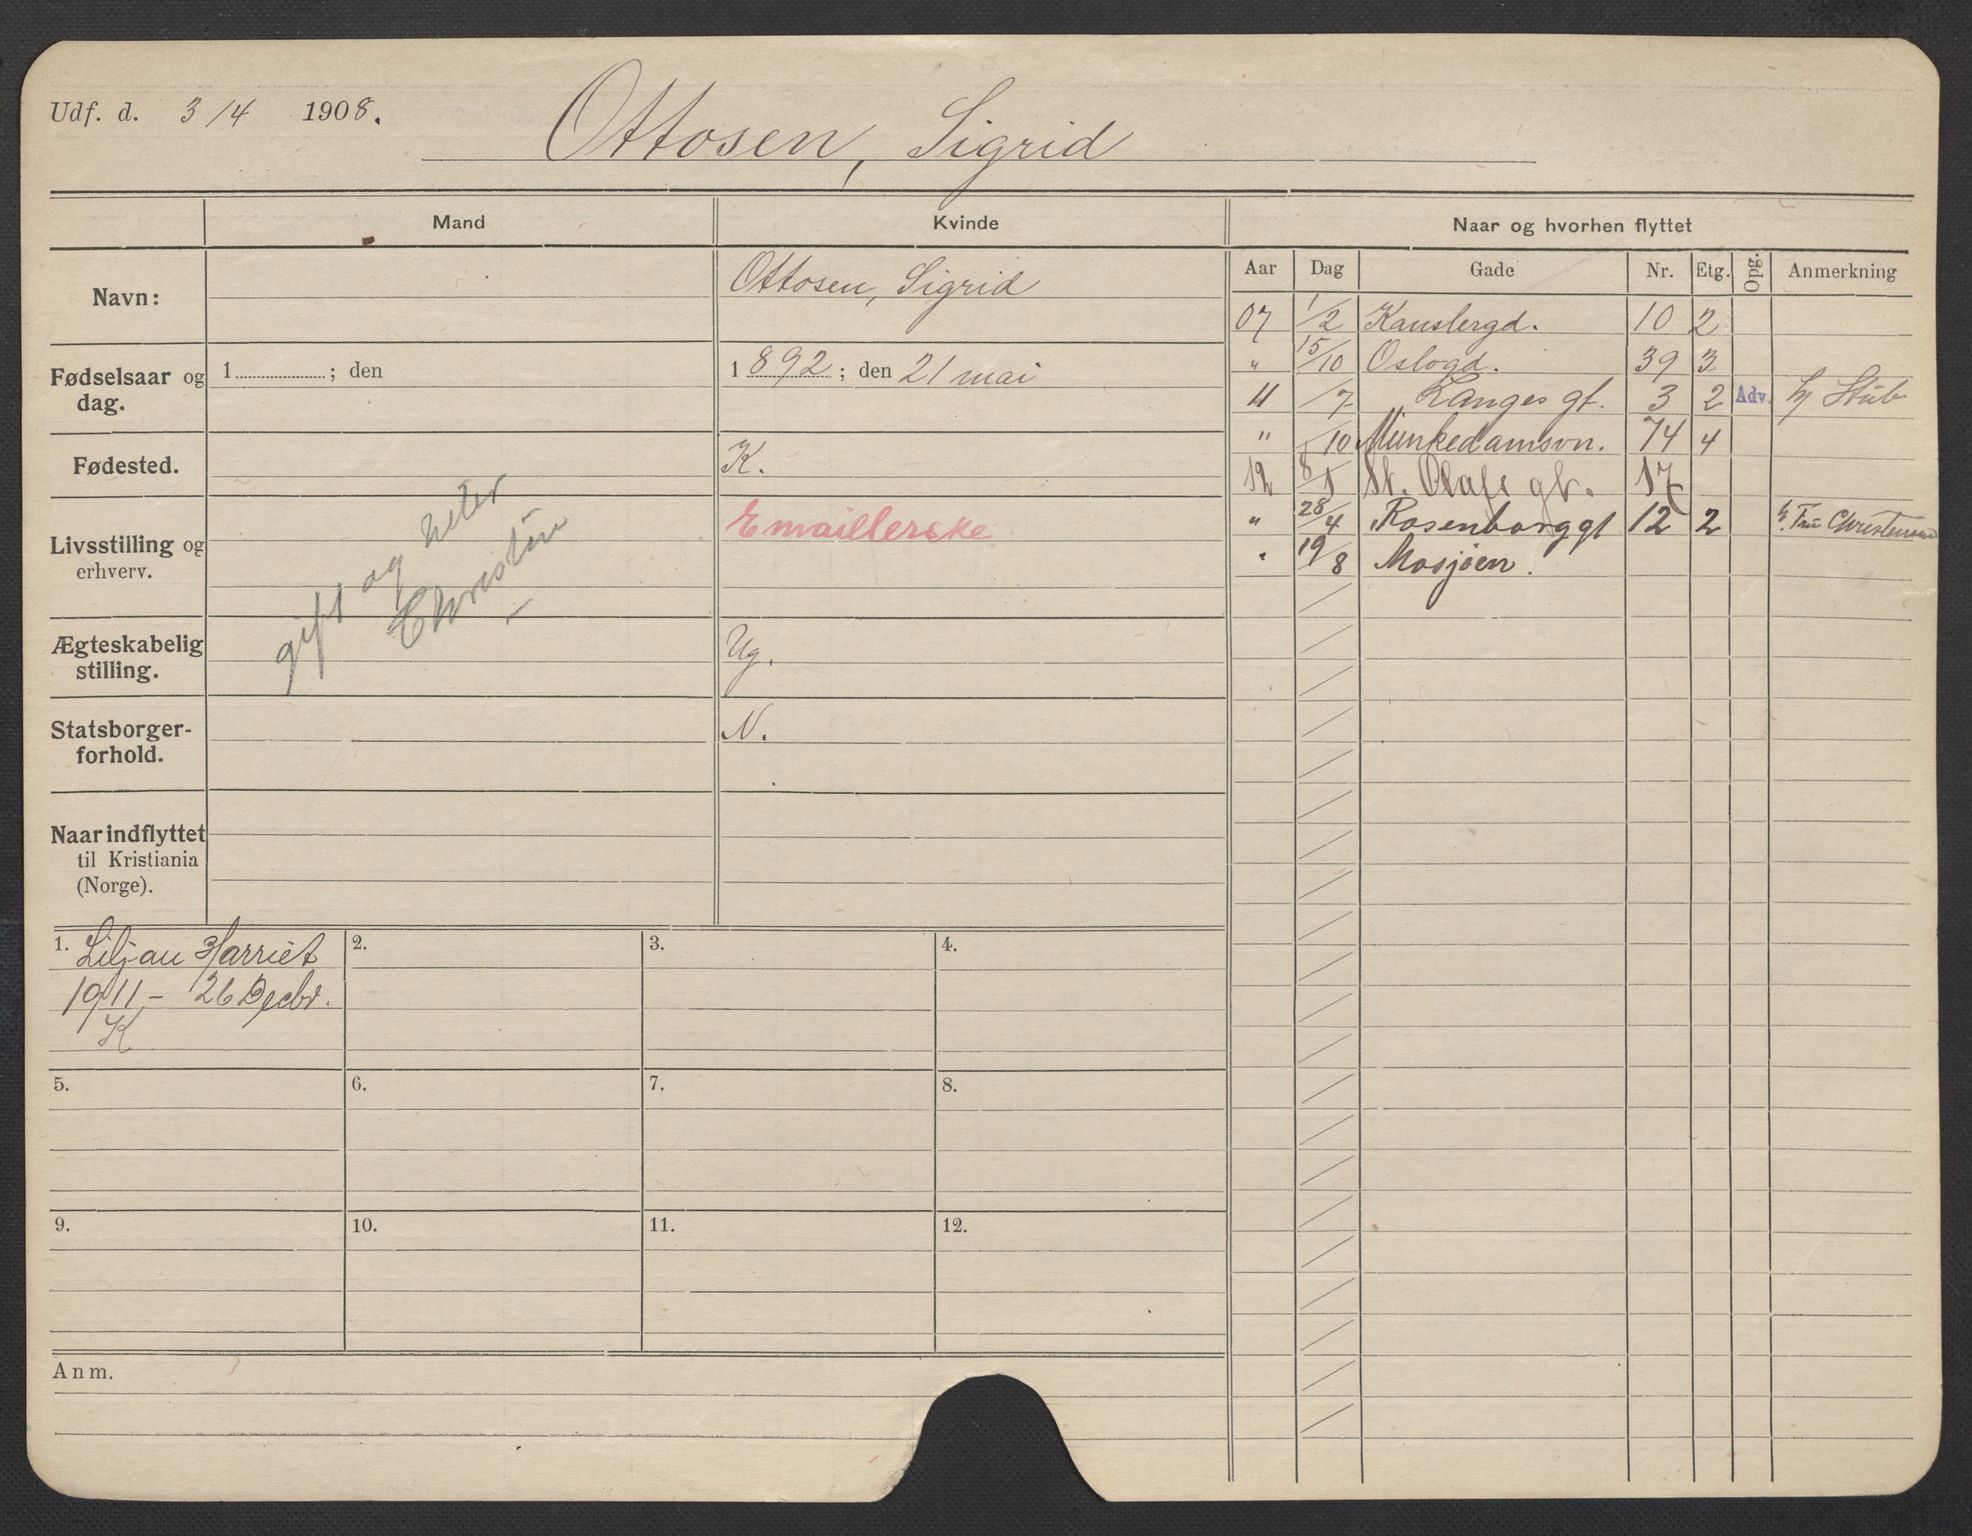 Udf. d. 3/4 1908.
Ottosen, Sigrid
Mand Kvinde Naar og hvorhen flyttet
Aar Dag Gade Nr. Etg. Opg. Anmerkning
Navn: Ottosen, Sigrid
Fødselsaar og dag. 1 ; den 1892 ; den 21 mai
Fødested. K.
Livsstilling og erhverv. Emaillerske
gift og heter
Christin
Ægteskabelig stilling. Ug.
Statsborgerforhold. N.
Naar indflyttet til Kristiania (Norge).
07 1/2 Kanslergd. 10 2
" 15/10 Oslogd. 39 3
11 /7 Langes gt. 3 2 Adv. hj Stub
" /10 Munkedamsvn. 74 4
12 8/1 St. Olafs gt. 17
" 28/4 Rosenborggt 12 2 h. Fru
" 19/8 Mosjøen.
1. Liljan Harriet
1911 - 26 Decbr.
K
2.
3.
4.
5.
6.
7.
8.
9.
10.
11.
12.
Anm.